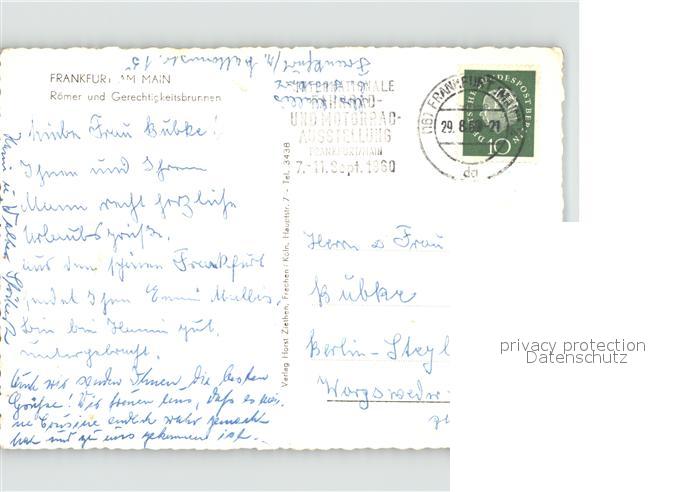 FRANKFURT AM MAIN
Römer und Gerechtigkeitsbrunnen
Frankfurt/M.
INTERNATIONALE
FAHRRAD-
UND MOTORRAD-
AUSSTELLUNG
FRANKFURT/MAIN
7.-11. Sept. 1960
(16) FRANKFURT (MAIN)
29.8.60.-21
da
DEUTSCHE BUNDESPOST BERLIN
10
Liebe Frau Bubke!
Ihnen und Ihrem
Mann recht herzliche
Urlaubsgrüße.
Aus dem schönen Frankfurt
sendet Ihnen Emmi
bin bei Hanni gut
untergebracht.
Auch wir senden Ihnen die besten
Grüße! Wir freuen uns, daß es mei-
ne Cousine endlich wahr gemacht
hat und zu uns gekommen ist.
Hanni u. Walter
Verlag Horst Ziethen, Frechen / Köln, Hauptstr. 7 - Tel. 3438
Herrn u Frau
Bubke
Berlin-Stegl
privacy protection
Datenschutz